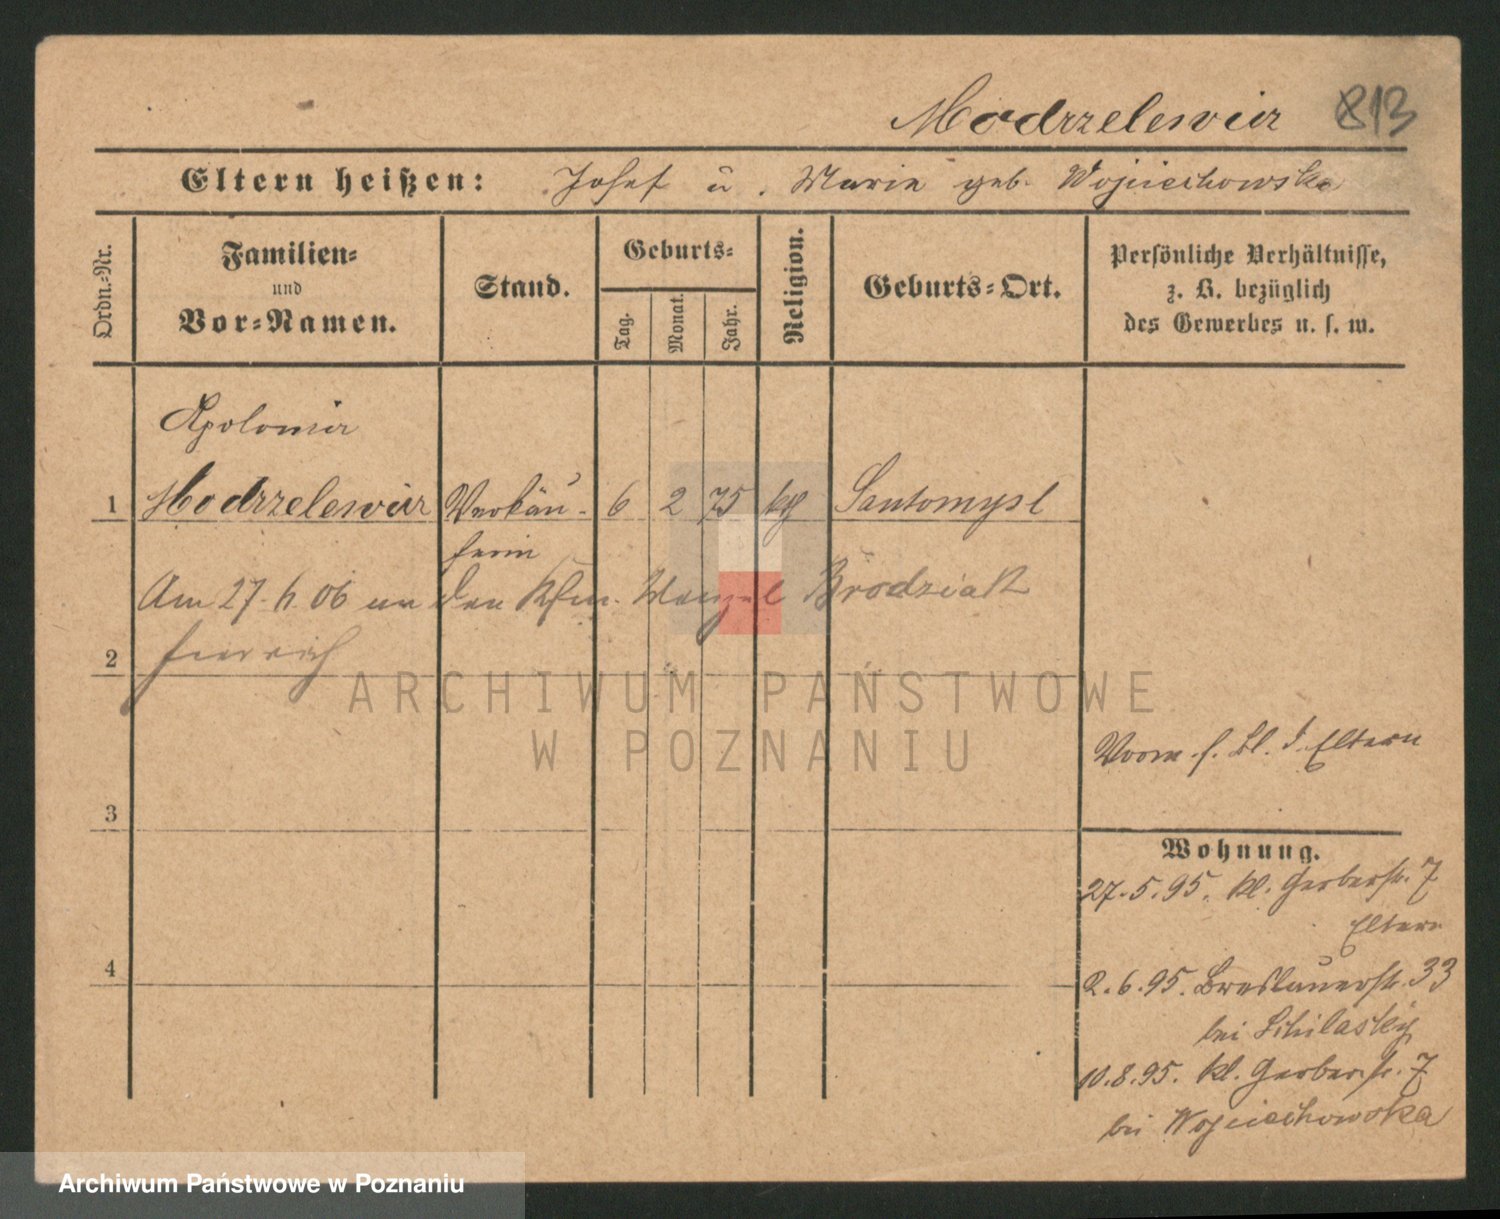 Modrzelewicz 813
Eltern heißen: Josef u. Marie geb. Wojciechowska
Ordn.-Nr.
Familien-
und
Vor-Namen.
Stand.
Geburts-
Tag.
Monat.
Jahr.
Religion.
Geburts-Ort.
Persönliche Verhältnisse,
z. B. bezüglich
des Gewerbes u. s. w.
Apolonia
1 Modrzelewicz Verkäu- 6 2 75 kth Santomysl
ferin
Am 27. 6. 06 an den Kfm. Brodziak
2
ARCHIWUM PAŃSTWOWE
W POZNANIU
Vorm. s. Bl. d. Eltern
3
Wohnung.
27.5.95. Kl. Gerberstr. 7
Eltern
4
2.6.95. Breslauerstr. 33
bei
10.8.95. Kl. Gerberstr. 7
bei Wojciechowska
Archiwum Państwowe w Poznaniu